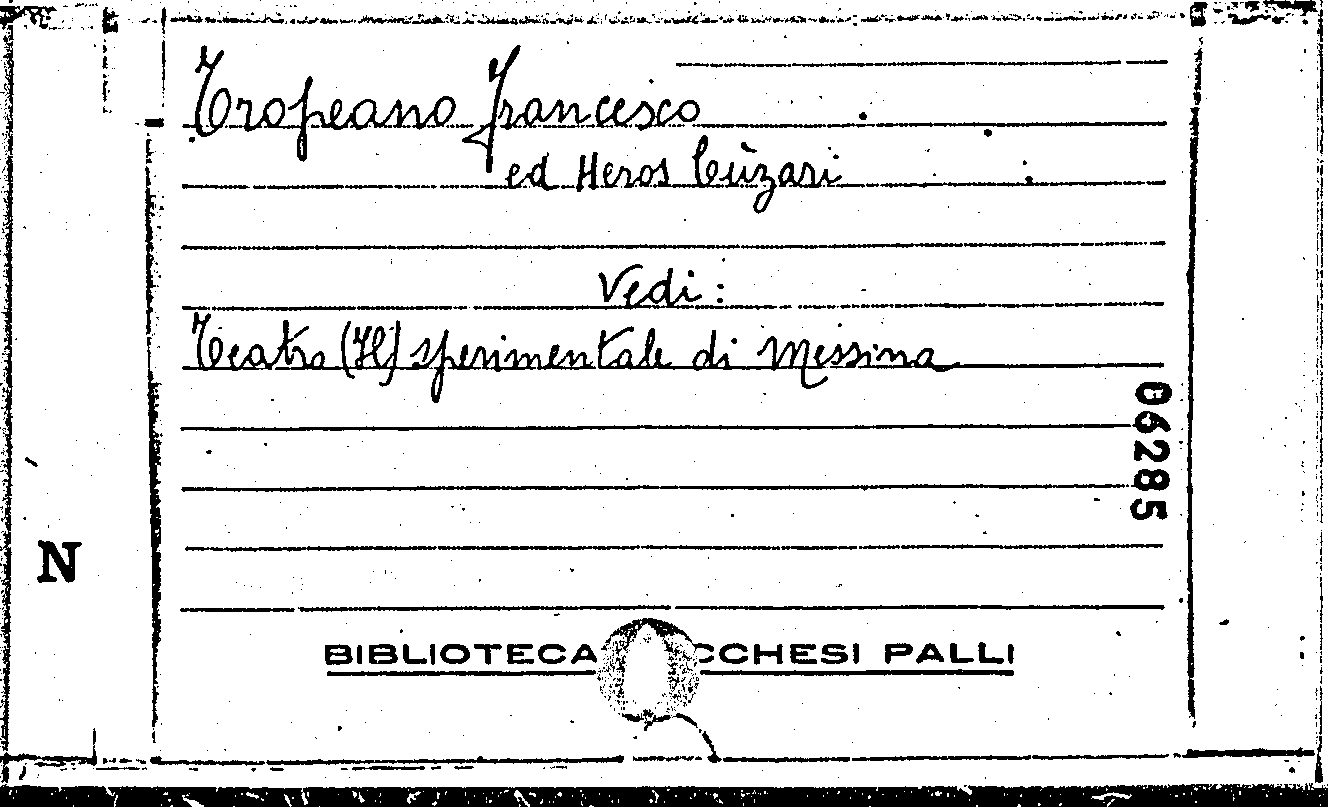 Tropeano Francesco
ed Heros Cùzari
Vedi:
Teatro (Il) sperimentale di Messina
06285
N
BIBLIOTECA CCHESI PALLI